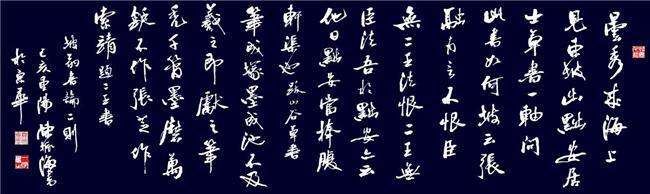 曇秀來海上
見東坡出黔安居
士草書一軸問
此書如何坡云張
融有言不恨臣
無二王法恨二王無
臣法吾於黔安亦云
他日黔安當捧腹
軒渠也 跋山谷草書
筆成塚墨成池不及
羲之即獻之筆
禿千管墨磨萬
鋌不作張芝作
索靖 題二王書
坡翁書論二則
己亥重陽 陳海書
於京華